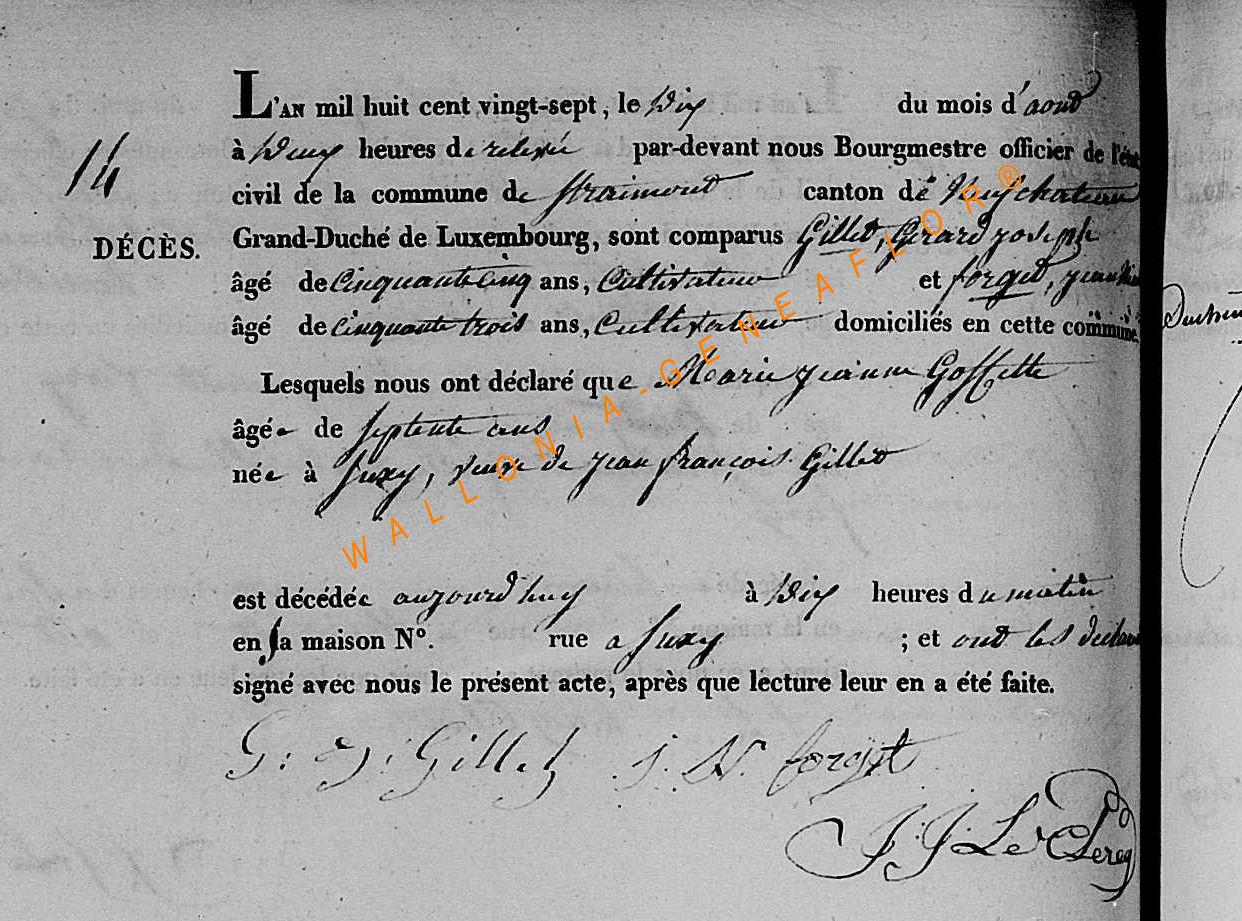 L'AN mil huit cent vingt-sept, le dix du mois d'aout
à deux heures de relevée par-devant nous Bourgmestre officier de l'état
14
civil de la commune de Straimont canton de Neufchateau
DÉCÈS.
Grand-Duché de Luxembourg, sont comparus Gillet, Gerard joseph
âgé de Cinquante cinq ans, Cultivateur et forget, jean
âgé de Cinquante trois ans, Cultivateur domiciliés en cette commune.
Lesquels nous ont déclaré que Marie jeanne Goffette
âgée de septente ans
née à Suxy, veuve de jean françois Gillet
WALLONIA-GENEAFLOR®
est décédée aujourd'huy à dix heures du matin
en sa maison N°. rue a Suxy ; et ont les
signé avec nous le présent acte, après que lecture leur en a été faite.
G. J. Gillet J. N. forget
J J Le Clercq